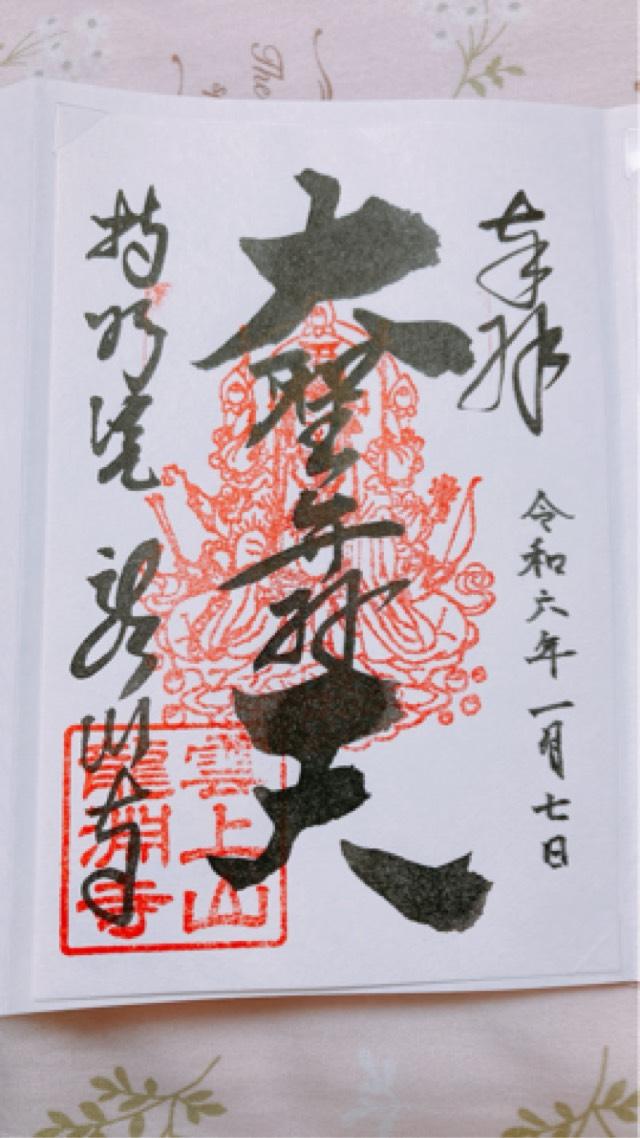 奉拝
令和六年一月七日
大聖弁財天
持明院 龍淵寺
雲上山
龍淵寺
The